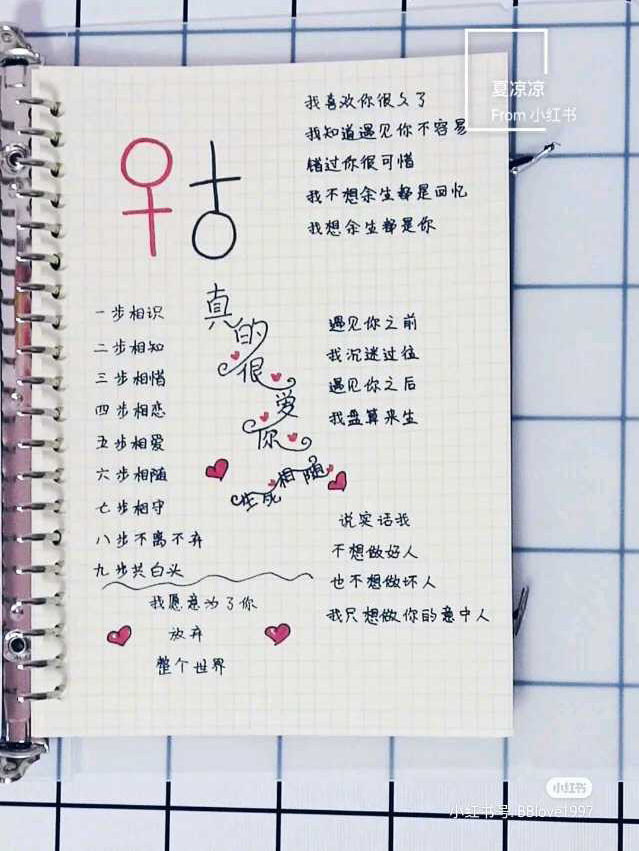 夏凉凉
From 小红书
我喜欢你很久了
我知道遇见你不容易
错过你很可惜
我不想余生都是回忆
我想余生都是你
真的很爱你
生死相随
一步相识
二步相知
三步相惜
四步相恋
五步相爱
六步相随
七步相守
八步不离不弃
九步共白头
遇见你之前
我沉迷过往
遇见你之后
我盘算来生
说实话我
不想做好人
也不想做坏人
我只想做你的意中人
我愿意为了你
放弃
整个世界
小红书
小红书号:BBlove1997